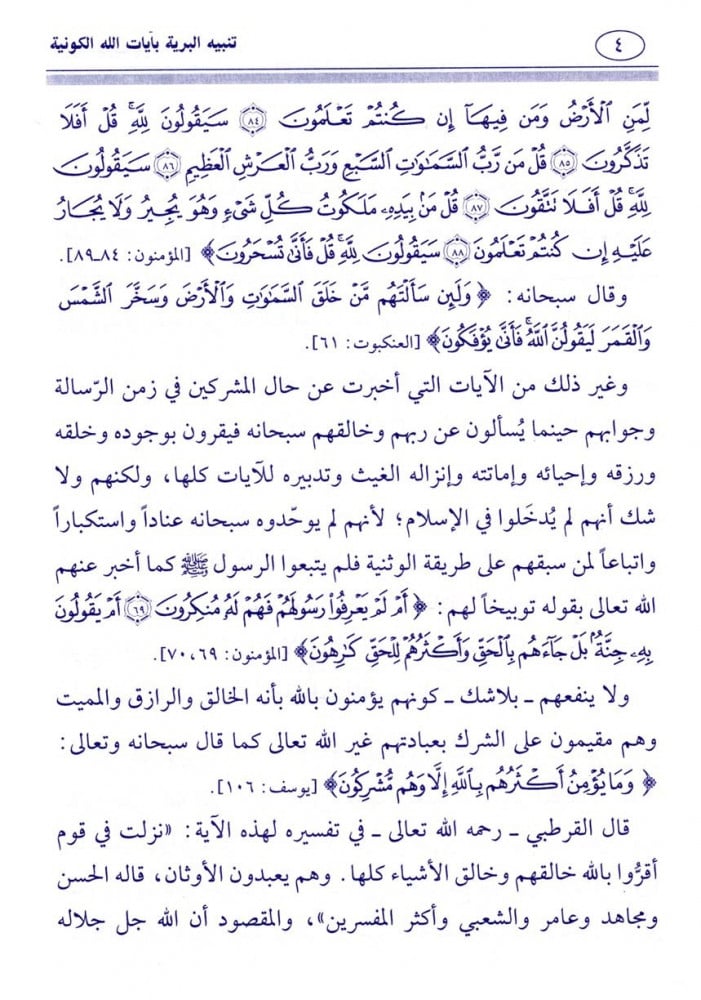 ٤
تنبيه البرية بآيات الله الكونية
لِّمَنِ ٱلْأَرْضُ وَمَن فِيهَآ إِن كُنتُمْ تَعْلَمُونَ ۝٨٤ سَيَقُولُونَ لِلَّهِ ۚ قُلْ أَفَلَا
تَذَكَّرُونَ ۝٨٥ قُلْ مَن رَّبُّ ٱلسَّمَٰوَٰتِ ٱلسَّبْعِ وَرَبُّ ٱلْعَرْشِ ٱلْعَظِيمِ ۝٨٦ سَيَقُولُونَ
لِلَّهِ ۚ قُلْ أَفَلَا تَتَّقُونَ ۝٨٧ قُلْ مَنۢ بِيَدِهِۦ مَلَكُوتُ كُلِّ شَىْءٍ وَهُوَ يُجِيرُ وَلَا يُجَارُ
عَلَيْهِ إِن كُنتُمْ تَعْلَمُونَ ۝٨٨ سَيَقُولُونَ لِلَّهِ ۚ قُلْ فَأَنَّىٰ تُسْحَرُونَ﴾ [المؤمنون: ٨٤ـ٨٩].
وقال سبحانه: ﴿وَلَئِن سَأَلْتَهُم مَّنْ خَلَقَ ٱلسَّمَٰوَٰتِ وَٱلْأَرْضَ وَسَخَّرَ ٱلشَّمْسَ
وَٱلْقَمَرَ لَيَقُولُنَّ ٱللَّهُ ۖ فَأَنَّىٰ يُؤْفَكُونَ﴾ [العنكبوت: ٦١].
وغير ذلك من الآيات التي أخبرت عن حال المشركين في زمن الرّسالة
وجوابهم حينما يُسألون عن ربهم وخالقهم سبحانه فيقرون بوجوده وخلقه
ورزقه وإحيائه وإماتته وإنزاله الغيث وتدبيره للآيات كلها، ولكنهم ولا
شك أنهم لم يُدخَلوا في الإسلام؛ لأنهم لم يوحّدوه سبحانه عناداً واستكباراً
واتباعاً لمن سبقهم على طريقة الوثنية فلم يتبعوا الرسول ﷺ كما أخبر عنهم
الله تعالى بقوله توبيخاً لهم: ﴿أَمْ لَمْ يَعْرِفُوا۟ رَسُولَهُمْ فَهُمْ لَهُۥ مُنكِرُونَ ۝٦٩ أَمْ يَقُولُونَ
بِهِۦ جِنَّةٌۢ ۚ بَلْ جَآءَهُم بِٱلْحَقِّ وَأَكْثَرُهُمْ لِلْحَقِّ كَٰرِهُونَ﴾ [المؤمنون: ٦٩، ٧٠].
ولا ينفعهم ـ بلاشك ـ كونهم يؤمنون بالله بأنه الخالق والرازق والمميت
وهم مقيمون على الشرك بعبادتهم غير الله تعالى كما قال سبحانه وتعالى:
﴿وَمَا يُؤْمِنُ أَكْثَرُهُم بِٱللَّهِ إِلَّا وَهُم مُّشْرِكُونَ﴾ [يوسف: ١٠٦].
قال القرطبي ـ رحمه الله تعالى ـ في تفسيره لهذه الآية: «نزلت في قوم
أقرُّوا بالله خالقهم وخالق الأشياء كلها. وهم يعبدون الأوثان، قاله الحسن
ومجاهد وعامر والشعبي وأكثر المفسرين»، والمقصود أن الله جل جلاله